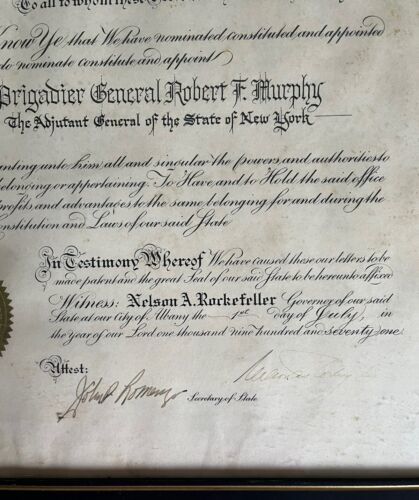 To all to whom these
Know Ye that We have nominated constituted and appointed
do nominate constitute and appoint
Brigadier General Robert F. Murphy
The Adjutant General of the State of New York
anting unto him all and singular the powers and authorities to
belonging or appertaining. To Have and to Hold the said office
profits and advantages to the same, belonging for and during the
onstitution and Laws of our said State
In Testimony Whereof We have caused these our letters to be
made patent and the great Seal of our said State to be hereunto affixed
Witness: Nelson A. Rockefeller Governor of our said
State at our City of Albany the 1st day of July, in
the year of our Lord one thousand nine hundred and seventy one
Attest:
John P. Lomenzo
Secretary of State